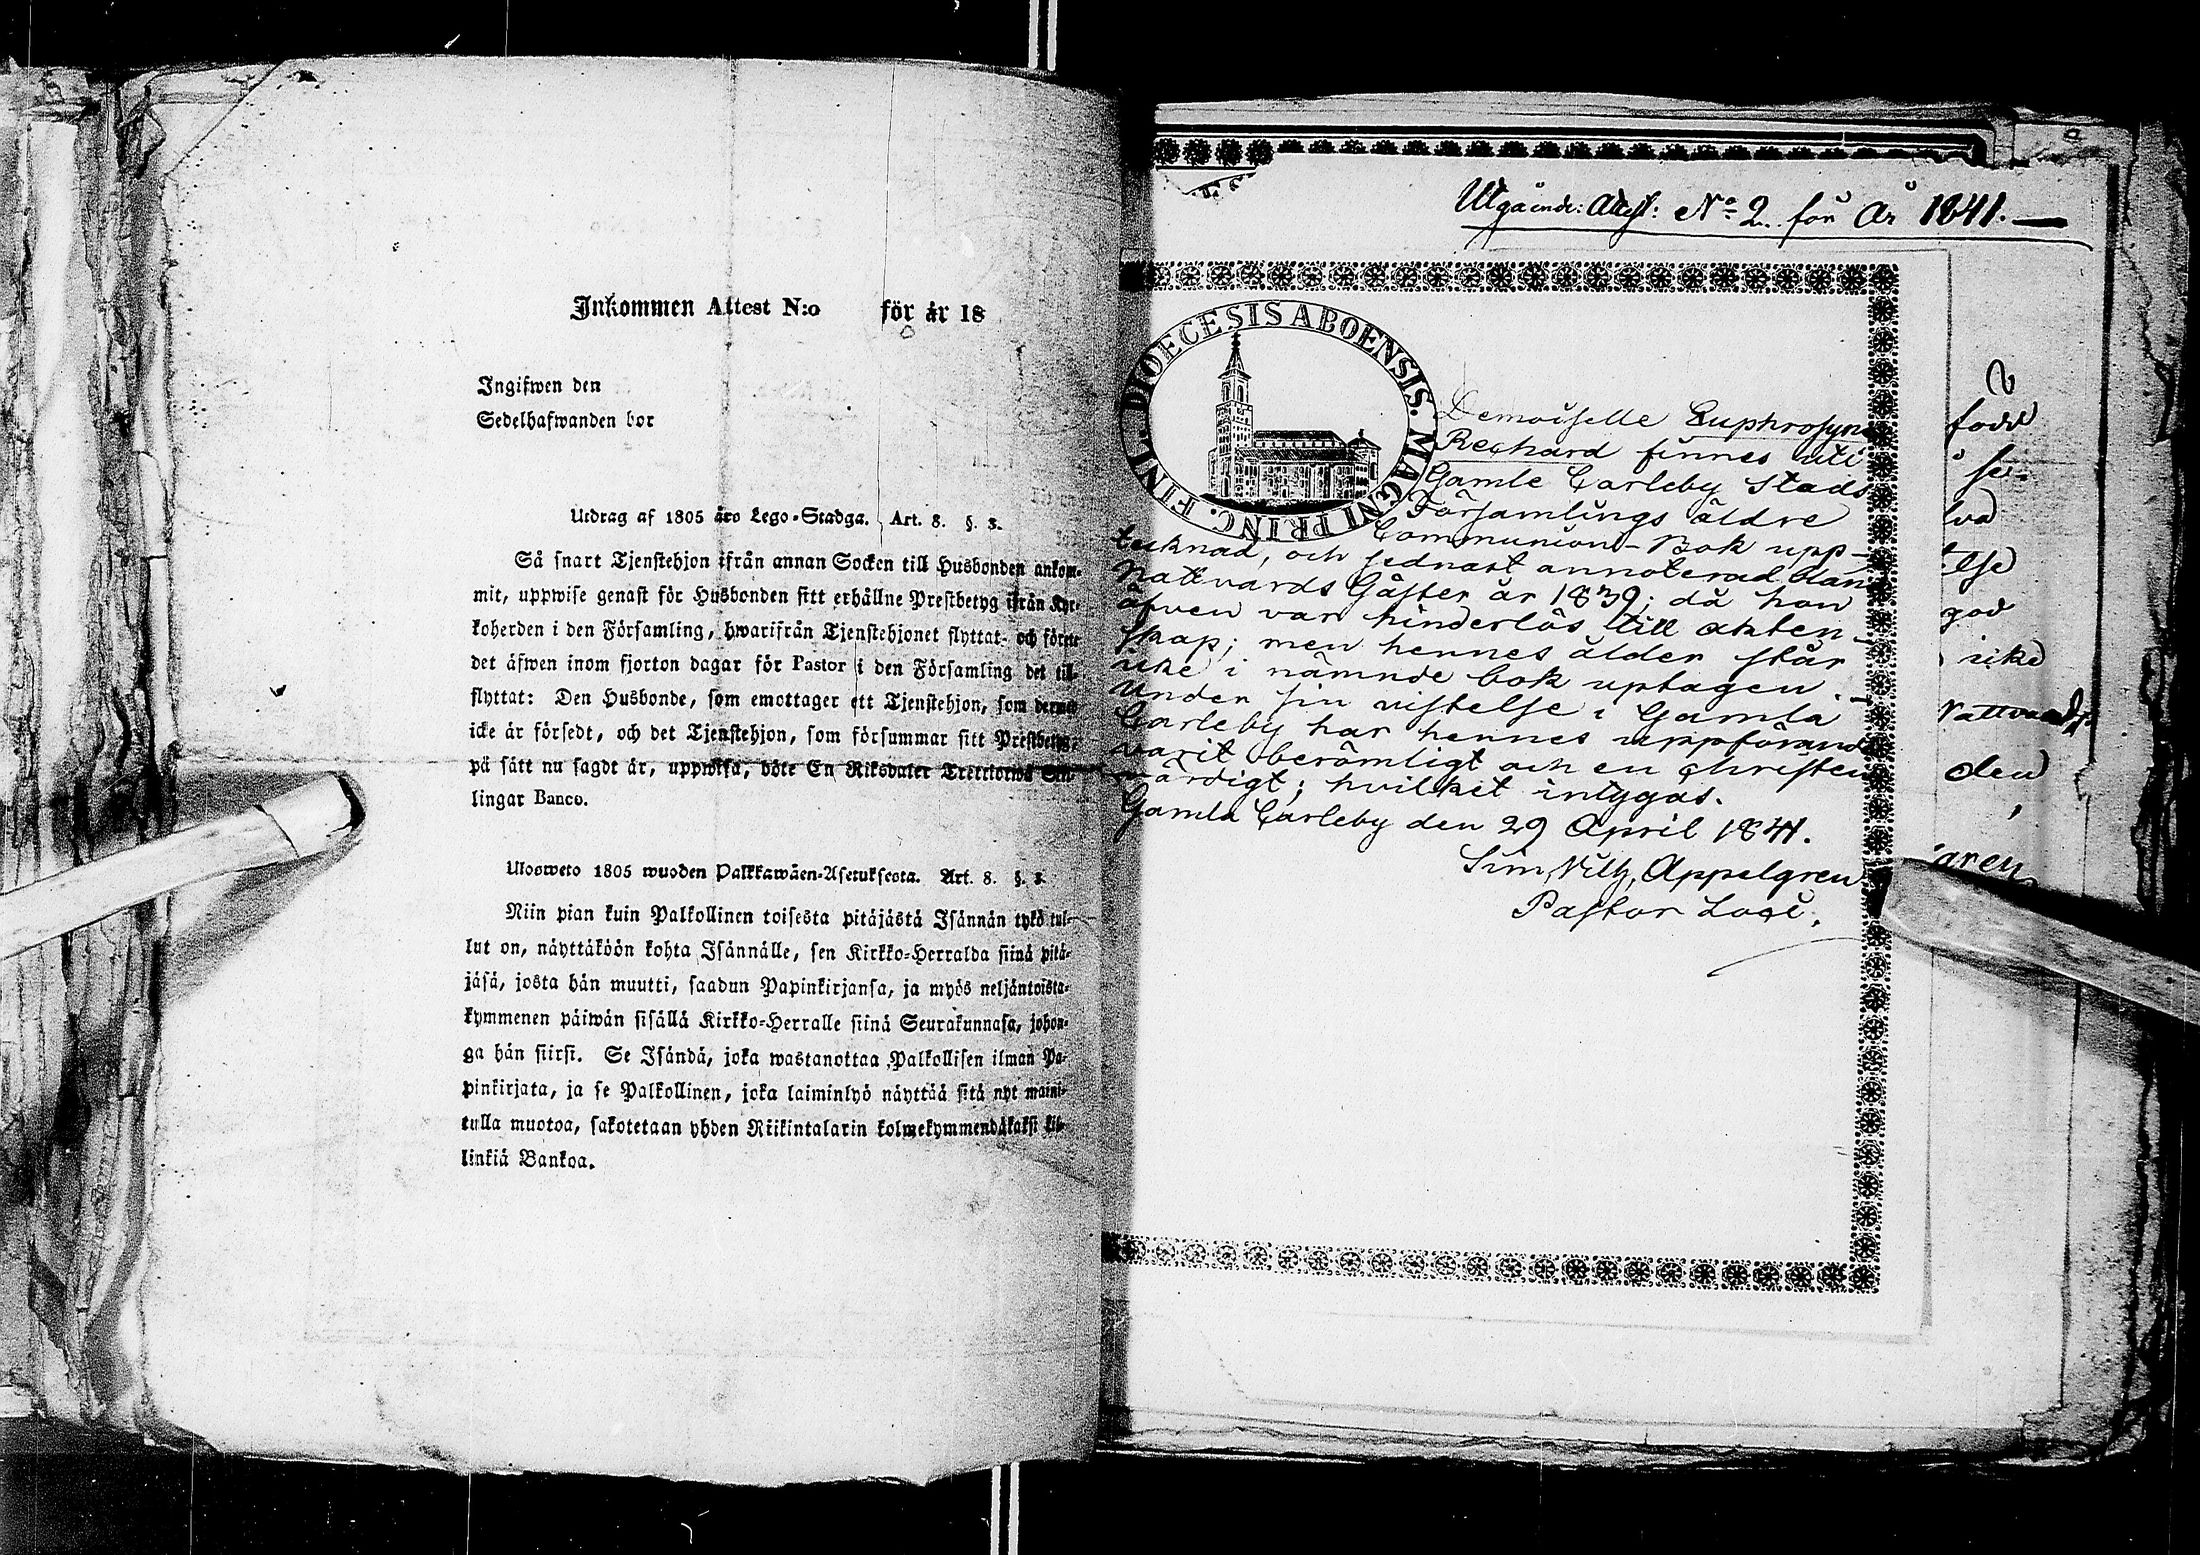 Inkommen Attest N:o för år 18
Ingifwen den
Sedelhafwanden bor
Utdrag af 1805 års Lego-Stadga. Art. 8. §. 3.
Så snart Tjenstehjon ifrån annan Socken till Husbonden ankom-
mit, uppwise genast för Husbonden sitt erhållne Prestbetyg ifrån Kyr-
koherden i den Församling, hwarifrån Tjenstehjonet flyttat- och förete
det äfwen inom fjorton dagar för Pastor i den Församling det till-
flyttat: Den Husbonde, som emottager ett Tjenstehjon, som dermed
icke är försedt, och det Tjenstehjon, som försummar sitt Prestbetyg,
på sätt nu sagdt är, uppwisa, böte En Riksdaler Trettiotwå Skil-
lingar Banco.
Ulosweto 1805 wuoden Palkkawäen-Asetuksesta. Art. 8. §. 3.
Niin pian kuin Palkollinen toisesta pitäjästä Isännän tykö tul-
lut on, näyttäköön kohta Isännälle, sen Kirkko-Herralda siinä pitä-
jäsä, josta hän muutti, saadun Papinkirjansa, ja myös neljäntoista-
kymmenen päiwän sisällä Kirkko-Herralle siinä Seurakunnasa, johon-
ga hän siirsi. Se Isändä, joka wastanottaa Palkollisen ilman Pa-
pinkirjata, ja se Palkollinen, joka laiminlyö näyttää sitä nyt maini-
tulla muotoa, sakotetaan yhden Riikintalarin kolmekymmendäkaksi kil-
linkiä Bankoa.
Utgående: Attest: No 2. för År 1841.
FINL. DIOECESIS ABOENSIS. MAGNI PRINC.
Demoiselle Euphrosyne
Rechard finnes uti
Gamle Carleby Stads
Församlings äldre
Communion-Bok upp-
tecknad, och sednast annoterad bland
Nattvards Gäster år 1839; då hon
äfven var hinderlös till äkten-
skap; men hennes ålder står
icke i nämnde bok uptagen. -
Under sin vistelse i Gamla
Carleby har hennes uppförande
varit berömligt och en christen
värdigt; hvilket intygas.
Gamla Carleby den 29 April 1841.
Sim. Vilh. Appelgren
Pastor Loci.
född
se-
lva
else
god
icke
Nattvards
den
gren